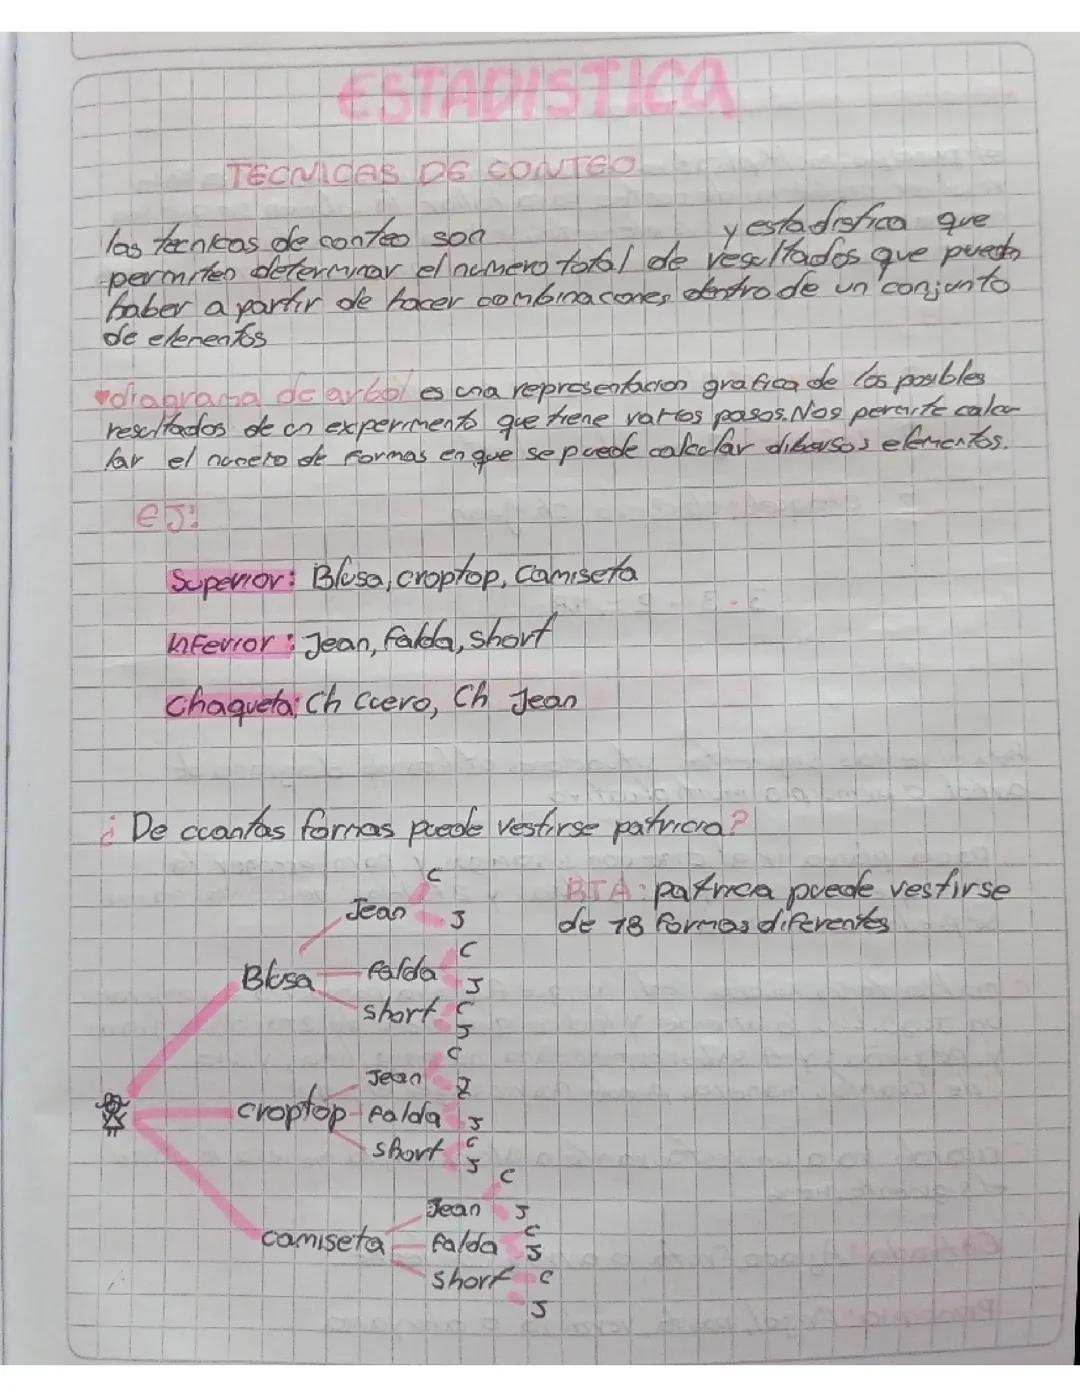 ESTADISTICA
TECNICAS DE CONTEO
las tecnicas de conteo son y estadistica que
permiten determinar el numero total de resultados que pueden
haber a partir de hacer combinaciones dentro de un conjunto
de elementos
diagrama de arbol es una representacion grafica de los posibles
resultados de un experimento que tiene varios pasos. Nos permite calcu-
lar el numero de formas en que se puede calcular dibersos elementos.
ej:
Superior: Blusa, croptop, Camiseta
inferior: Jean, falda, short
Chaqueta: Ch Cuero, Ch Jean
¿De cuantas formas puede vestirse patricia?
RTA: patricia puede vestirse
de 18 formas diferentes
C
Jean
J
C
Blusa falda
J
short C
J
C
Jean
J
croptop falda
J
short C
J
C
Jean
J
C
camiseta falda
J
short C
J